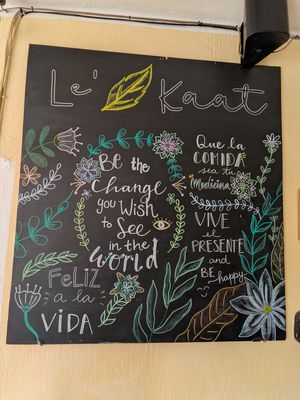 Le' Kaat
Be the
Change
you Wish
to See
in the
World
Que la
COMIDA
sea tu
Medicina
VIVE
el
PRESENTE
and
BE happy
FeLiZ
a la
ViDA